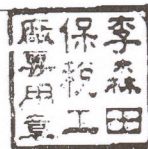 李森田
保稅工
廠專用章